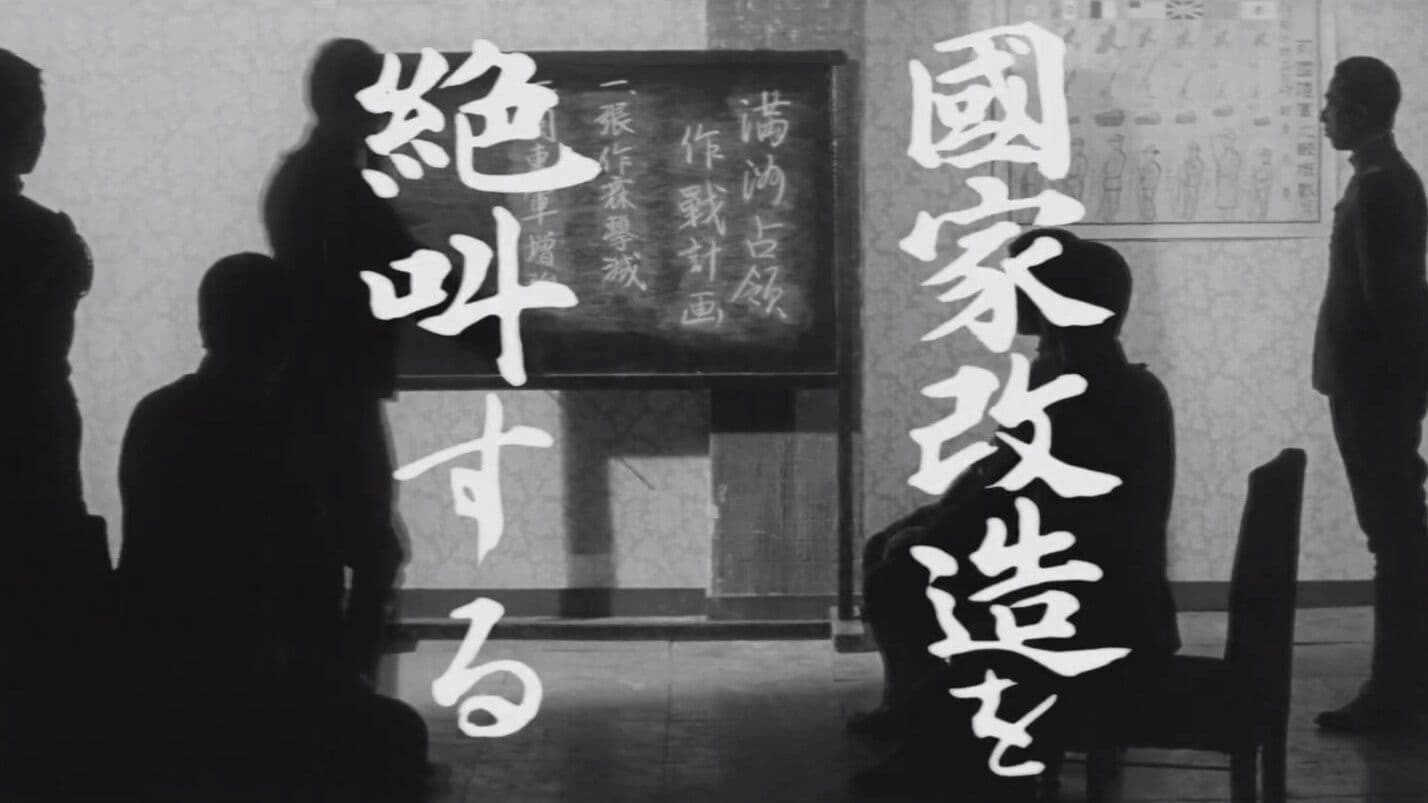 國家改造を
絶叫する
満洲占領
作戰計画
一、張作霖撃滅
東軍増